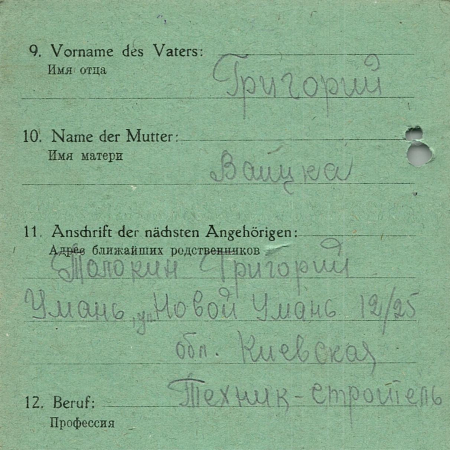 9. Vorname des Vaters:
Имя отца
Григорий
10. Name der Mutter:
Имя матери
Вайцка
11. Anschrift der nächsten Angehörigen:
Адрес ближайших родственников
Толокин Григорий
Умань, ул. Новой Умань 12/25
обл. Киевская
12. Beruf:
Техник-строитель
Профессия